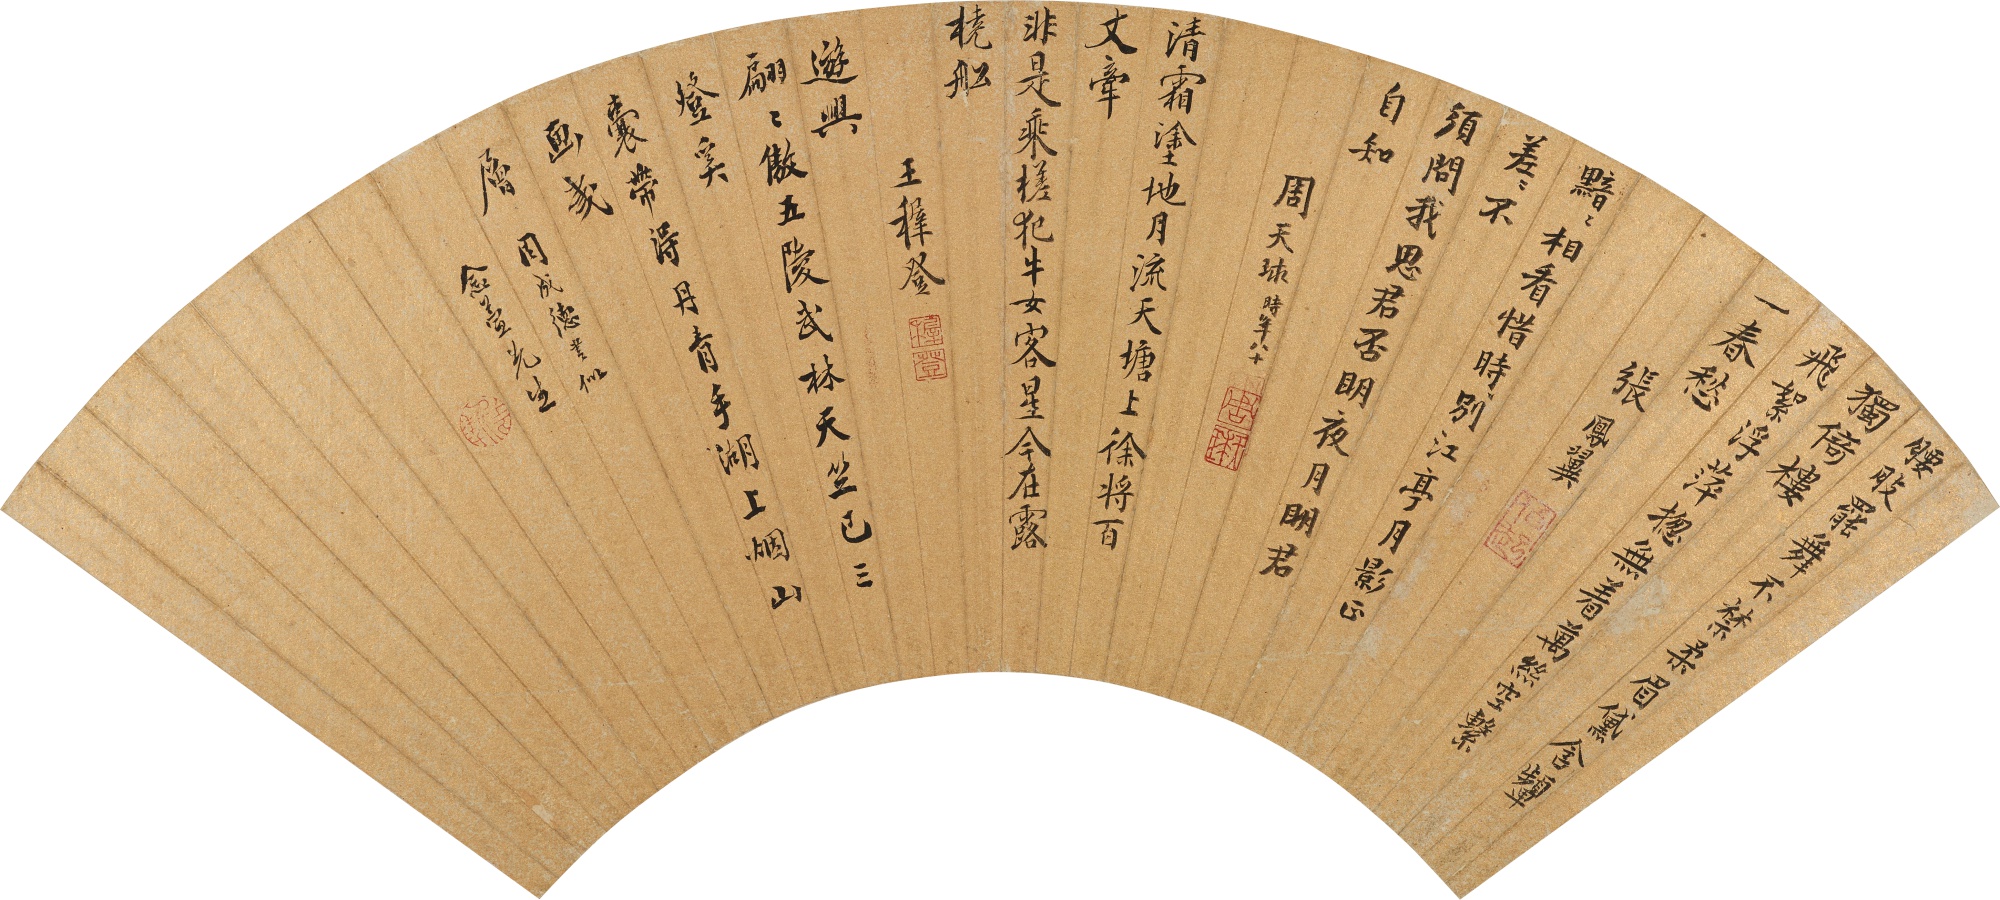 腰肢罷舞不禁柔眉黛含顰
獨倚樓
飛絮浮萍揔無着萬絲空繫
一春愁
張鳳翼
黯〻相看惜時別江亭月影正
差〻不
須問我思君否明夜月明君
自知
周天球時年八十
清霜塗地月流天塘上徐將百
丈牽
非是乘槎犯牛女客星今在露
橈船
王穉登
遊興
翩〻傲五陵武林天竺已三
登奚
囊帶得丹青手湖上烟山
画幾
層
周成德書似
念萱先生